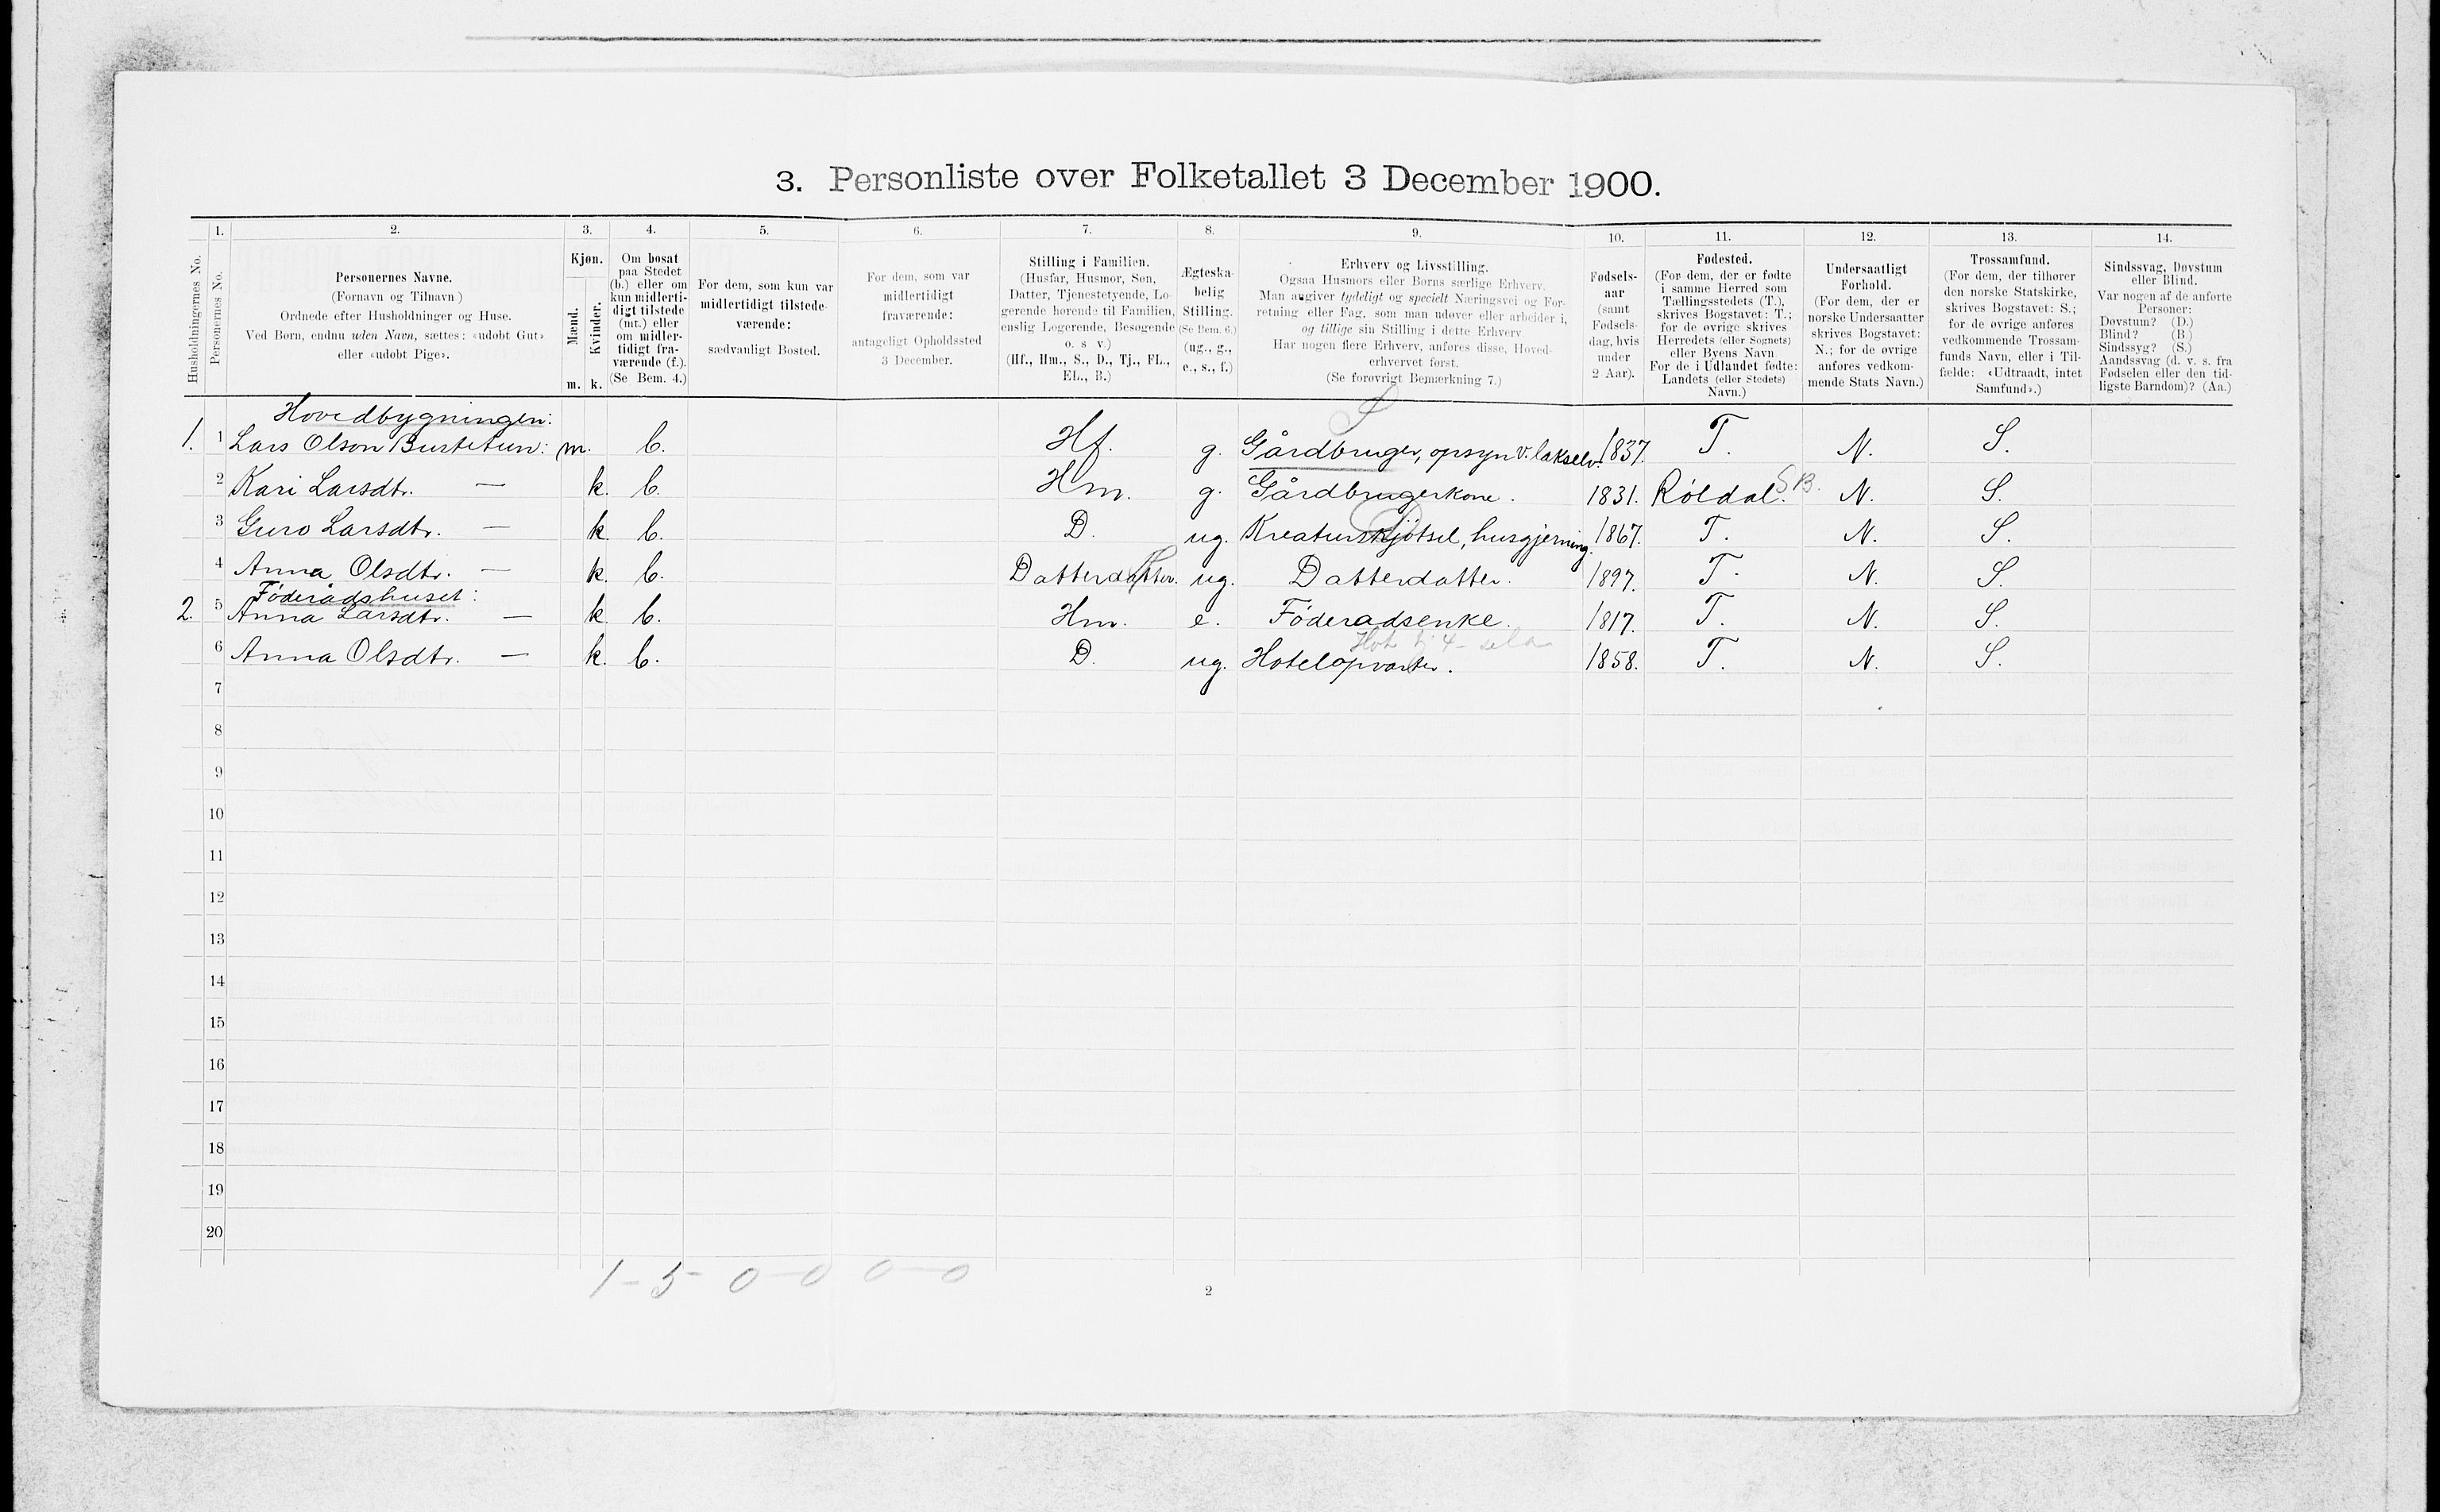 3. Personliste over Folketallet 3 December 1900.
1. 2. 3. 4. 5. 6. 7. 8. 9. 10. 11. 12. 13. 14.
Husholdningernes No.
Personernes No.
Personernes Navne.
(Fornavn og Tilnavn)
Ordnede efter Husholdninger og Huse.
Ved Børn, endnu uden Navn, sættes: «udøbt Gut»
eller «udøbt Pige».
Kjøn.
Mænd.
Kvinder.
m. k.
Om bosat
paa Stedet
(b.) eller om
kun midlerti-
digt tilstede
(mt.) eller
om midler-
tidigt fra-
værende (f.).
(Se Bem. 4.)
For dem, som kun var
midlertidigt tilstede-
værende:
sædvanligt Bosted.
For dem, som var
midlertidigt
fraværende:
antageligt Opholdssted
3 December.
Stilling i Familien.
(Husfar, Husmor, Søn,
Datter, Tjenestetyende, Lo-
gerende hørende til Familien,
enslig Logerende, Besøgende
o. s v.)
(Hf., Hm., S., D., Tj., FL.,
EL., B.)
Ægteska-
belig
Stilling.
(Se Bem. 6.)
(ug., g.,
e., s., f.)
Erhverv og Livsstilling.
Ogsaa Husmors eller Børns særlige Erhverv.
Man angiver tydeligt og specielt Næringsvei og For-
retning eller Fag, som man udøver eller arbeider i,
og tillige sin Stilling i dette Erhverv.
Har nogen flere Erhverv, anføres disse, Hoved-
erhvervet først.
(Se forøvrigt Bemærkning 7.)
Fødsels-
aar
(samt
Fødsels-
dag, hvis
under
2 Aar).
Fødested.
(For dem, der er fødte
i samme Herred som
Tællingsstedets (T.),
skrives Bogstavet: T.;
for de øvrige skrives
Herredets (eller Sognets)
eller Byens Navn
For de i Udlandet fødte:
Landets (eller Stedets)
Navn.)
Undersaatligt
Forhold.
(For dem, der er
norske Undersaatter
skrives Bogstavet:
N.; for de øvrige
anføres vedkom-
mende Stats Navn.)
Trossamfund.
(For dem, der tilhører
den norske Statskirke,
skrives Bogstavet: S.;
for de øvrige anføres
vedkommende Trossam-
funds Navn, eller i Til-
fælde: «Udtraadt, intet
Samfund».)
Sindssvag, Døvstum
eller Blind.
Var nogen af de anførte
Personer:
Døvstum? (D.)
Blind? (B.)
Sindssyg? (S.)
Aandssvag (d. v. s. fra
Fødselen eller den tid-
ligste Barndom)? (Aa.)
Hovedbygningen:
1. 1 Lars Olson Burtetun: m. b. Hf. g. Gårdbruger, opsyn v. lakselv. 1837. T. N. S.
2 Kari Larsdtr. — k. b. Hm. g. Gårdbrugerkone. 1831. Röldal. SB. N. S.
3 Guro Larsdtr. — k. b. D. ug. Kreaturskjötsel, husgjerning. 1867. T. N. S.
4 Anna Olsdtr. — k. b. Datterdatter. ug. Datterdatter. 1897. T. N. S.
Föderådshuset:
2. 5 Anna Larsdtr. — k. b. Hm. e. Föderadsenke. 1817. T. N. S.
6 Anna Olsdtr. — k. b. D. ug. Hotelopvarter. 1858. T. N. S.
7
8
9
10
11
12
13
14
15
16
17
18
19
20
1 - 5 0 - 0 0 - 0
2